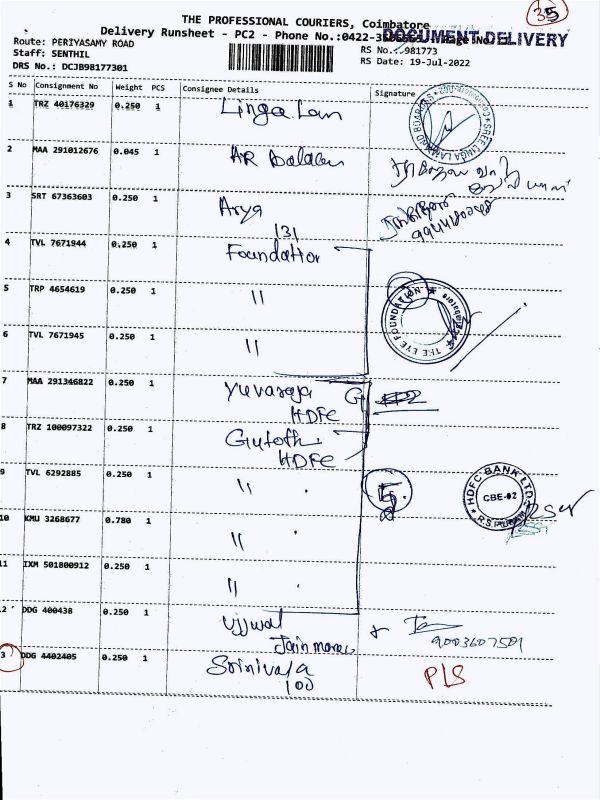 35
THE PROFESSIONAL COURIERS, Coimbatore
Delivery Runsheet - PC2 - Phone No.:0422- Page No.
DOCUMENT DELIVERY
Route: PERIYASAMY ROAD
RS No.: 981773
Staff: SENTHIL
RS Date: 19-Jul-2022
DRS No.: DCJB98177301
S No Consignment No Weight PCS Consignee Details Signature
1 TRZ 40176329 0.250 1 Linga Lan
2 MAA 291012676 0.045 1 AR
3 SRT 67363603 0.250 1 Arya
131
4 TVL 7671944 0.250 1 Foundation
5 TRP 4654619 0.250 1 "
THE EYE FOUNDATION
6 TVL 7671945 0.250 1 "
7 MAA 291346822 0.250 1 Yuvaraja G
HDFC
8 TRZ 100097322 0.250 1
HDFC
9 TVL 6292885 0.250 1 "
HDFC BANK LTD.
CBE-02
R.S. PURAM
10 KMU 3268677 0.780 1 "
11 IXM 501800912 0.250 1 "
12 DDG 400438 0.250 1 Ujjwal
Jain
9003607501
3 DDG 4402405 0.250 1 Srinivasa
100
PLS